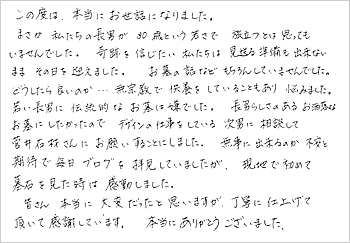 この度は、本当にお世話になりました。
まさか私たちの長男が30歳という若さで旅立つとは思っても
いませんでした。奇跡を信じたい私たちは見送る準備も出来ない
ままその日を迎えました。お墓の話などもちろんしていませんでした。
どうしたら良いのか…無宗教で供養をしていることもあり悩みました。
若い長男に伝統的なお墓は嫌でした。長男らしさのあるお洒落な
お墓にしたかったのでデザインの仕事をしている次男に相談して
菅井石材さんにお願いすることにしました。無事に出来るのか不安と
期待で毎日ブログを拝見していましたが、現地で初めて
墓石を見た時は感動しました。
皆さん本当に大変だったと思いますが、丁寧に仕上げて
頂いて感謝しています。本当にありがとうございました。